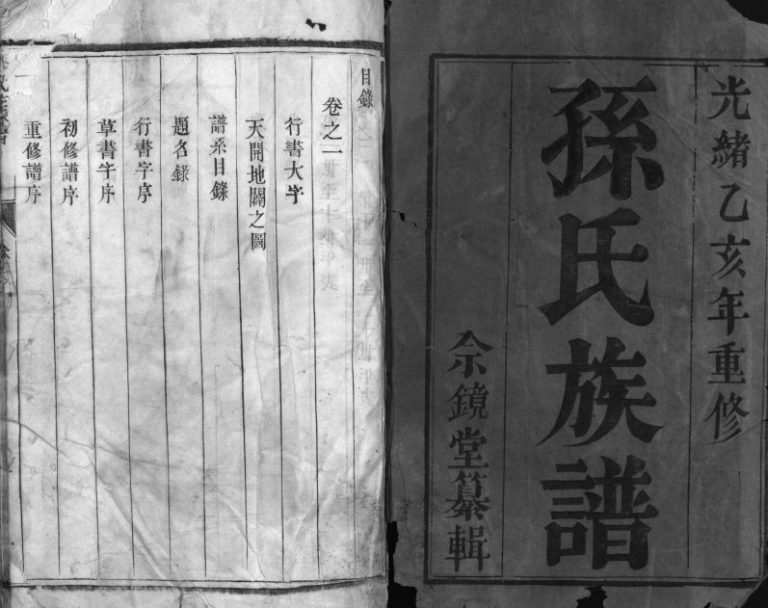 光緒乙亥年重修
孫氏族譜
尒鏡堂纂輯
目錄
卷之一
行書大字
天開地闢之圖
譜系目錄
題名錄
行書字序
草書字序
初修譜序
重修譜序